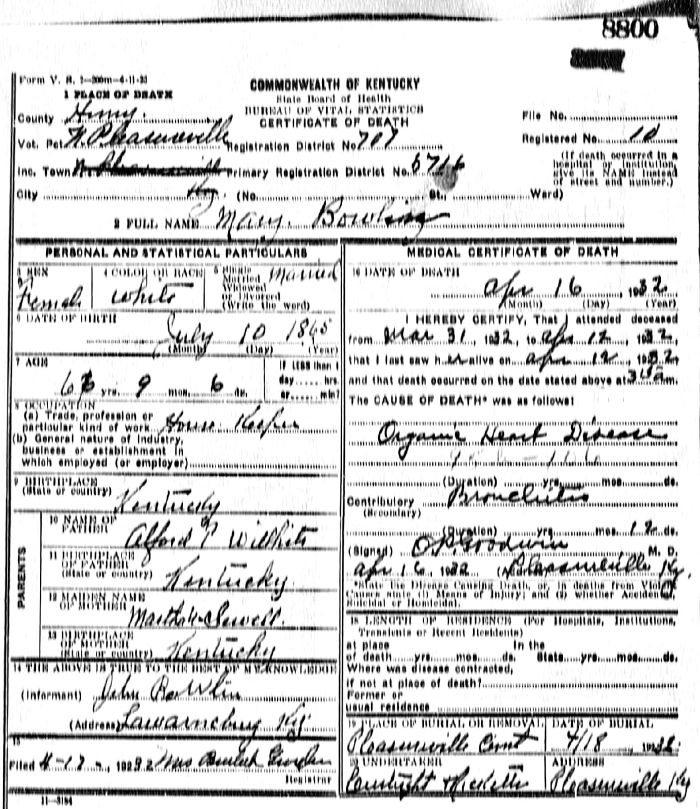 8800
Form V. S. 1-200m-4-11-23
1 PLACE OF DEATH
COMMONWEALTH OF KENTUCKY
State Board of Health
BUREAU OF VITAL STATISTICS
CERTIFICATE OF DEATH
County Henry.
File No.
Vot. Pct N. Pleasureville Registration District No. 707
Registered No. 10
Inc. Town Primary Registration District No. 5716
(If death occurred in a hospital or institution, give its NAME instead of street and number.)
City (No. St., Ward)
2 FULL NAME Mary. Bowling
PERSONAL AND STATISTICAL PARTICULARS
3 SEX Female
4 COLOR OR RACE White
5 Single Married Widowed or Divorced (Write the word) Married
6 DATE OF BIRTH
July 10 1865
(Month) (Day) (Year)
7 AGE
yrs. 9 mos. 6 ds.
If LESS than 1 day hrs. or min?
8 OCCUPATION
(a) Trade, profession or
particular kind of work House Keeper
(b) General nature of industry,
business or establishment in
which employed (or employer)
9 BIRTHPLACE
(State or country) Kentucky
PARENTS
10 NAME OF
FATHER Alford Wilhite
11 BIRTHPLACE
OF FATHER
(State or country) Kentucky
12 MAIDEN NAME
OF MOTHER
Sewell.
13 BIRTHPLACE
OF MOTHER
(State or country) Kentucky
14 THE ABOVE IS TRUE TO THE BEST OF MY KNOWLEDGE
(Informant) John
(Address) Ky
15
Filed 192 Mrs
Registrar
11-3184
MEDICAL CERTIFICATE OF DEATH
16 DATE OF DEATH
apr 16 1932
(Month) (Day) (Year)
I HEREBY CERTIFY, That I attended deceased
from Mar 31, 1932, to apr 12, 1932,
that I last saw her alive on apr 12, 1932
and that death occurred on the date stated above at m.
The CAUSE OF DEATH* was as follows:
Organic Heart Disease
(Duration) yrs. mos. ds.
Contributory Bronchitis
(Secondary)
(Duration) yrs. mos. 12 ds.
(Signed) Goodwin M. D.
apr 16 1932 (Pleasureville Ky.
*State the Disease Causing Death, or, in deaths from Violent
Causes state (1) Means of Injury; and (2) whether Accidental,
Suicidal or Homicidal.
18 LENGTH OF RESIDENCE (For Hospitals, Institutions,
Transients or Recent Residents)
at place In the
of death yrs. mos. ds. State yrs. mos. ds.
Where was disease contracted,
if not at place of death?
Former or
usual residence
19 PLACE OF BURIAL OR REMOVAL
DATE OF BURIAL
Pleasureville Cemt 4/18, 1932
20 UNDERTAKER
ADDRESS
Ricketts Pleasureville Ky